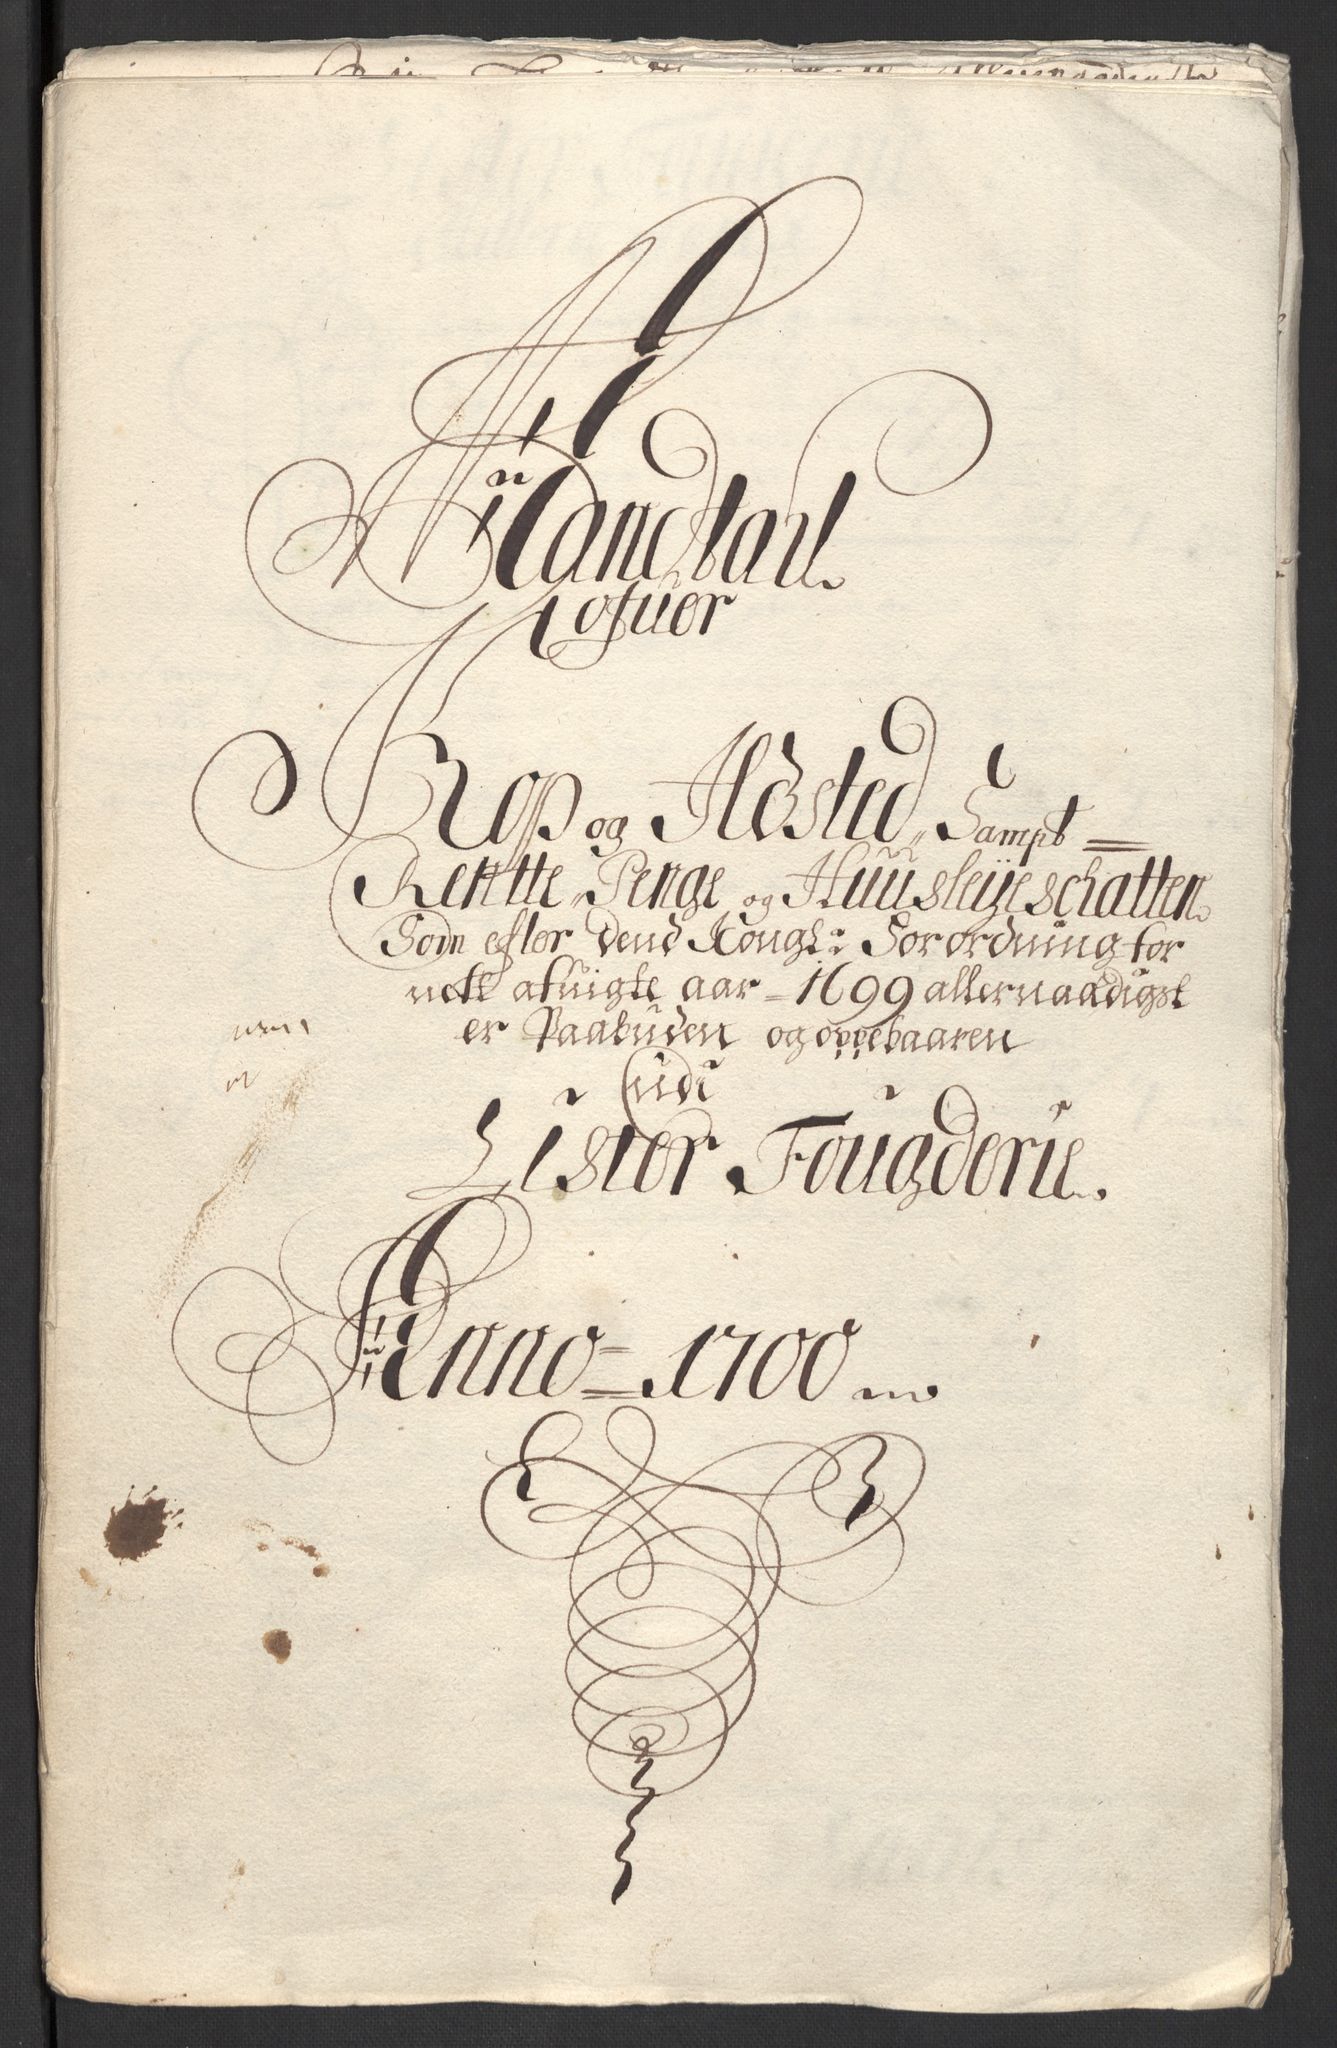 Mandtal
ofuer
Kop og Ildsted, Sampt
Rentte-Penge og Huusleÿeschatten
Som efter dend Kongl: Forordning for
nest afuigte aar 1699 allernaadigst
er Paabuden og oppebaaren
udi
Lister Fougderie.
Anno 1700